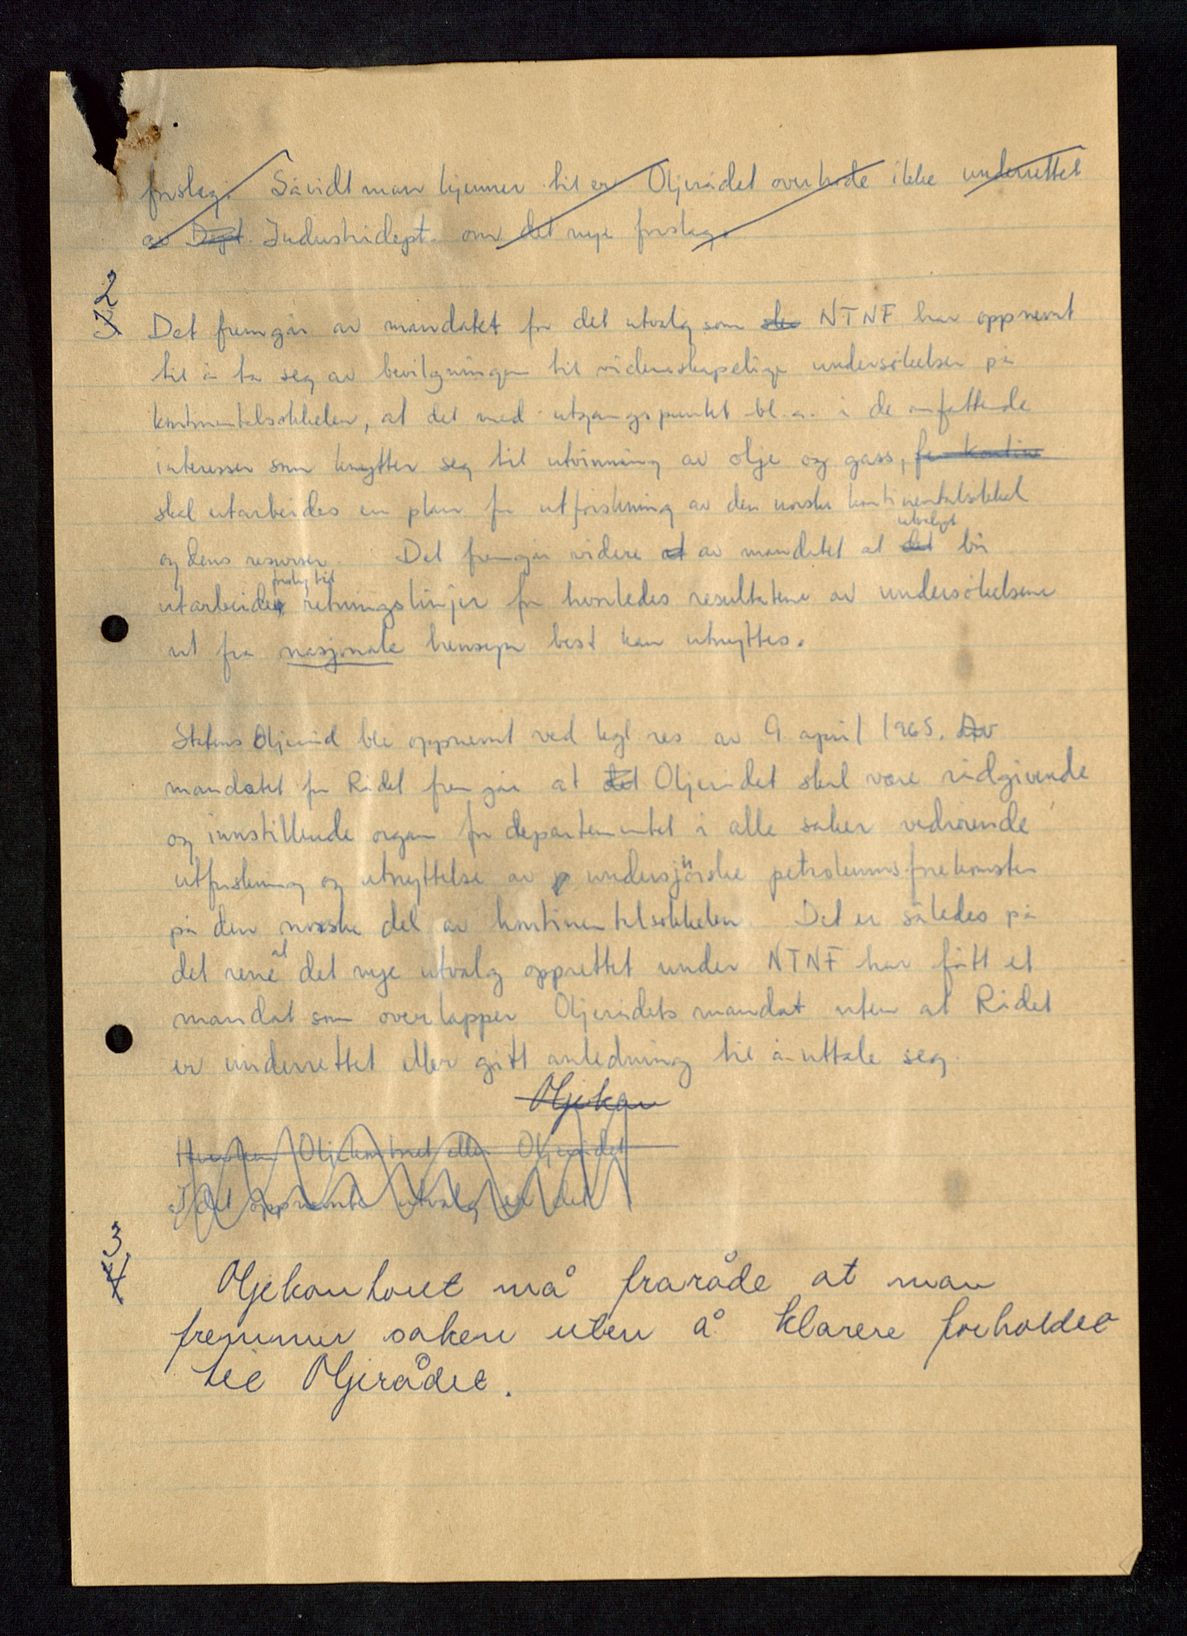 forslag. Såvidt man kjenner til er Oljerådet overhode ikke underrettet
av Dept. Industridept. om det nye forslag.
2
3 Det fremgår av mandatet for det utvalg som NTNF har oppnevnt
til å ta seg av bevilgningen til videnskapelige undersökelser på
kontinentalsokkelen, at det med utgangspunkt bl.a. i de omfattende
interesser som knytter seg til utvinning av olje og gass, for kontine
skal utarbeides en plan for utforskning av den norske kontinentalsokkel
utvalget
og dens resurser. Det fremgår videre at av mandatet at det bör
forslag til
utarbeides retningslinjer for hvorledes resultatene av undersökelsene
ut fra nasjonale hensyn best kan utnyttes.
Statens Oljeråd ble oppnevnt ved kgl res av 9 april 1965. Av
mandatet for Rådet fremgår at det Oljerådet skal være rådgivende
og innstillende organ for departementet i alle saker vedrörende
utforskning og utnyttelse av p undersjöiske petroleumsforekomster
på den norske del av kontinentalsokkelen. Det er således på
at
det rene det nye utvalg opprettet under NTNF har fått et
mandat som overlapper Oljerådets mandat uten at Rådet
er underrettet eller gitt anledning til å uttale seg.
Oljekon
Hverken Oljekontoret eller Oljerådet
I det oppnevnte utvalg er det
3
4 Oljekontoret må fraråde at man
fremmer saken uten å klarere forholdet
til Oljerådet.